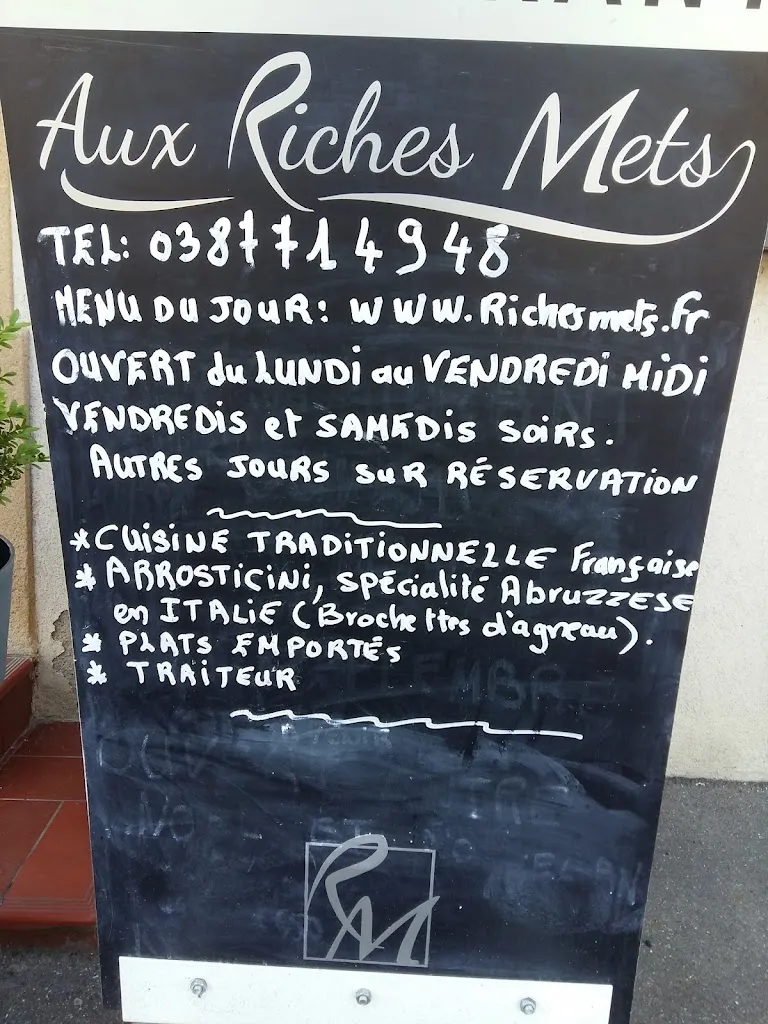 Aux Riches Mets
TEL: 0387714948
MENU DU JOUR: WWW.Richesmets.Fr
OUVERT du LUNDi au VENDREDi MiDi
VENDREDiS et SAMEDiS SoiRS.
AUTRES JOURS SUR RÉSERVATiON
*CUiSiNE TRADiTiONNELLE Française
* ARROSTiCiNi, Spécialité AbruZZESE
en ITALiE (Brochettes d'agneau).
* PLATS EMPORTÉS
* TRAiTEUR
RM